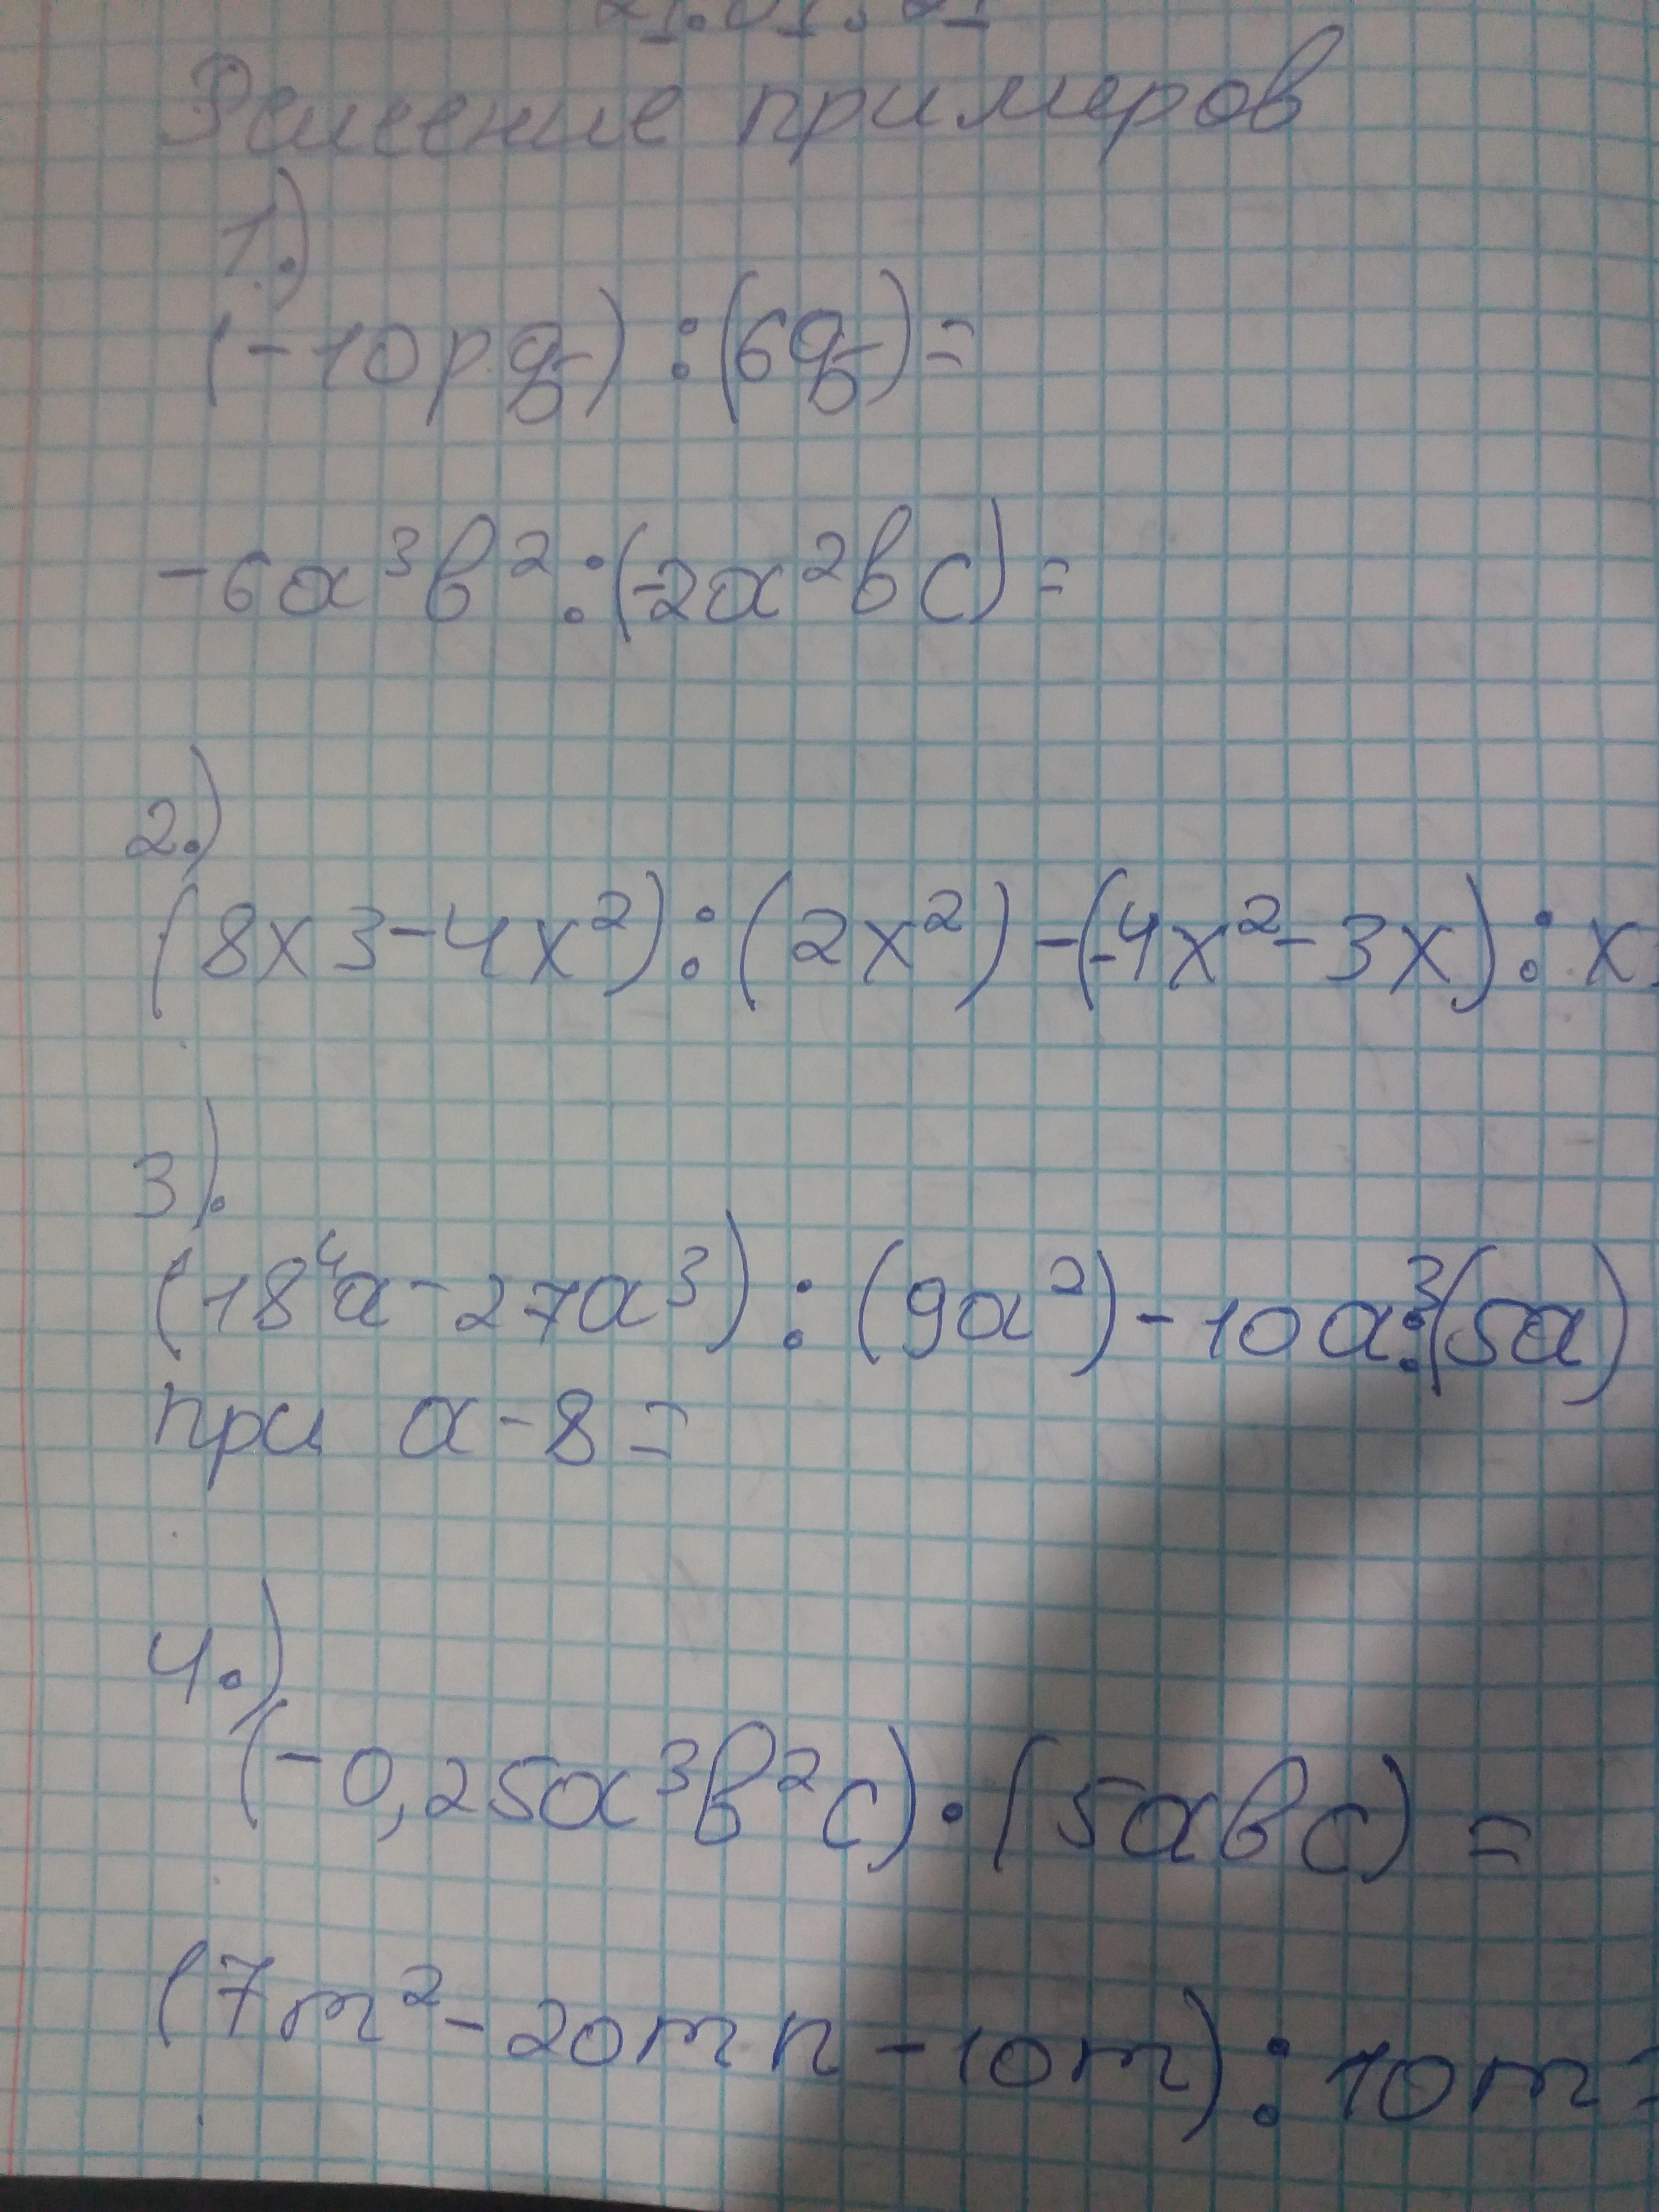 21.01.21
Решение примеров
1.)
(-10pq):(6q)=
-6a³b²:(-2a²bc)=
2.)
(8x3-4x²):(2x²)-(-4x²-3x):x=
3).
(18⁴a-27a³):(9a²)-10a³:(5a)
при a-8=
4.)
(-0,25a³b²c)·(5abc)=
(7m²-20mn-10m):10m=